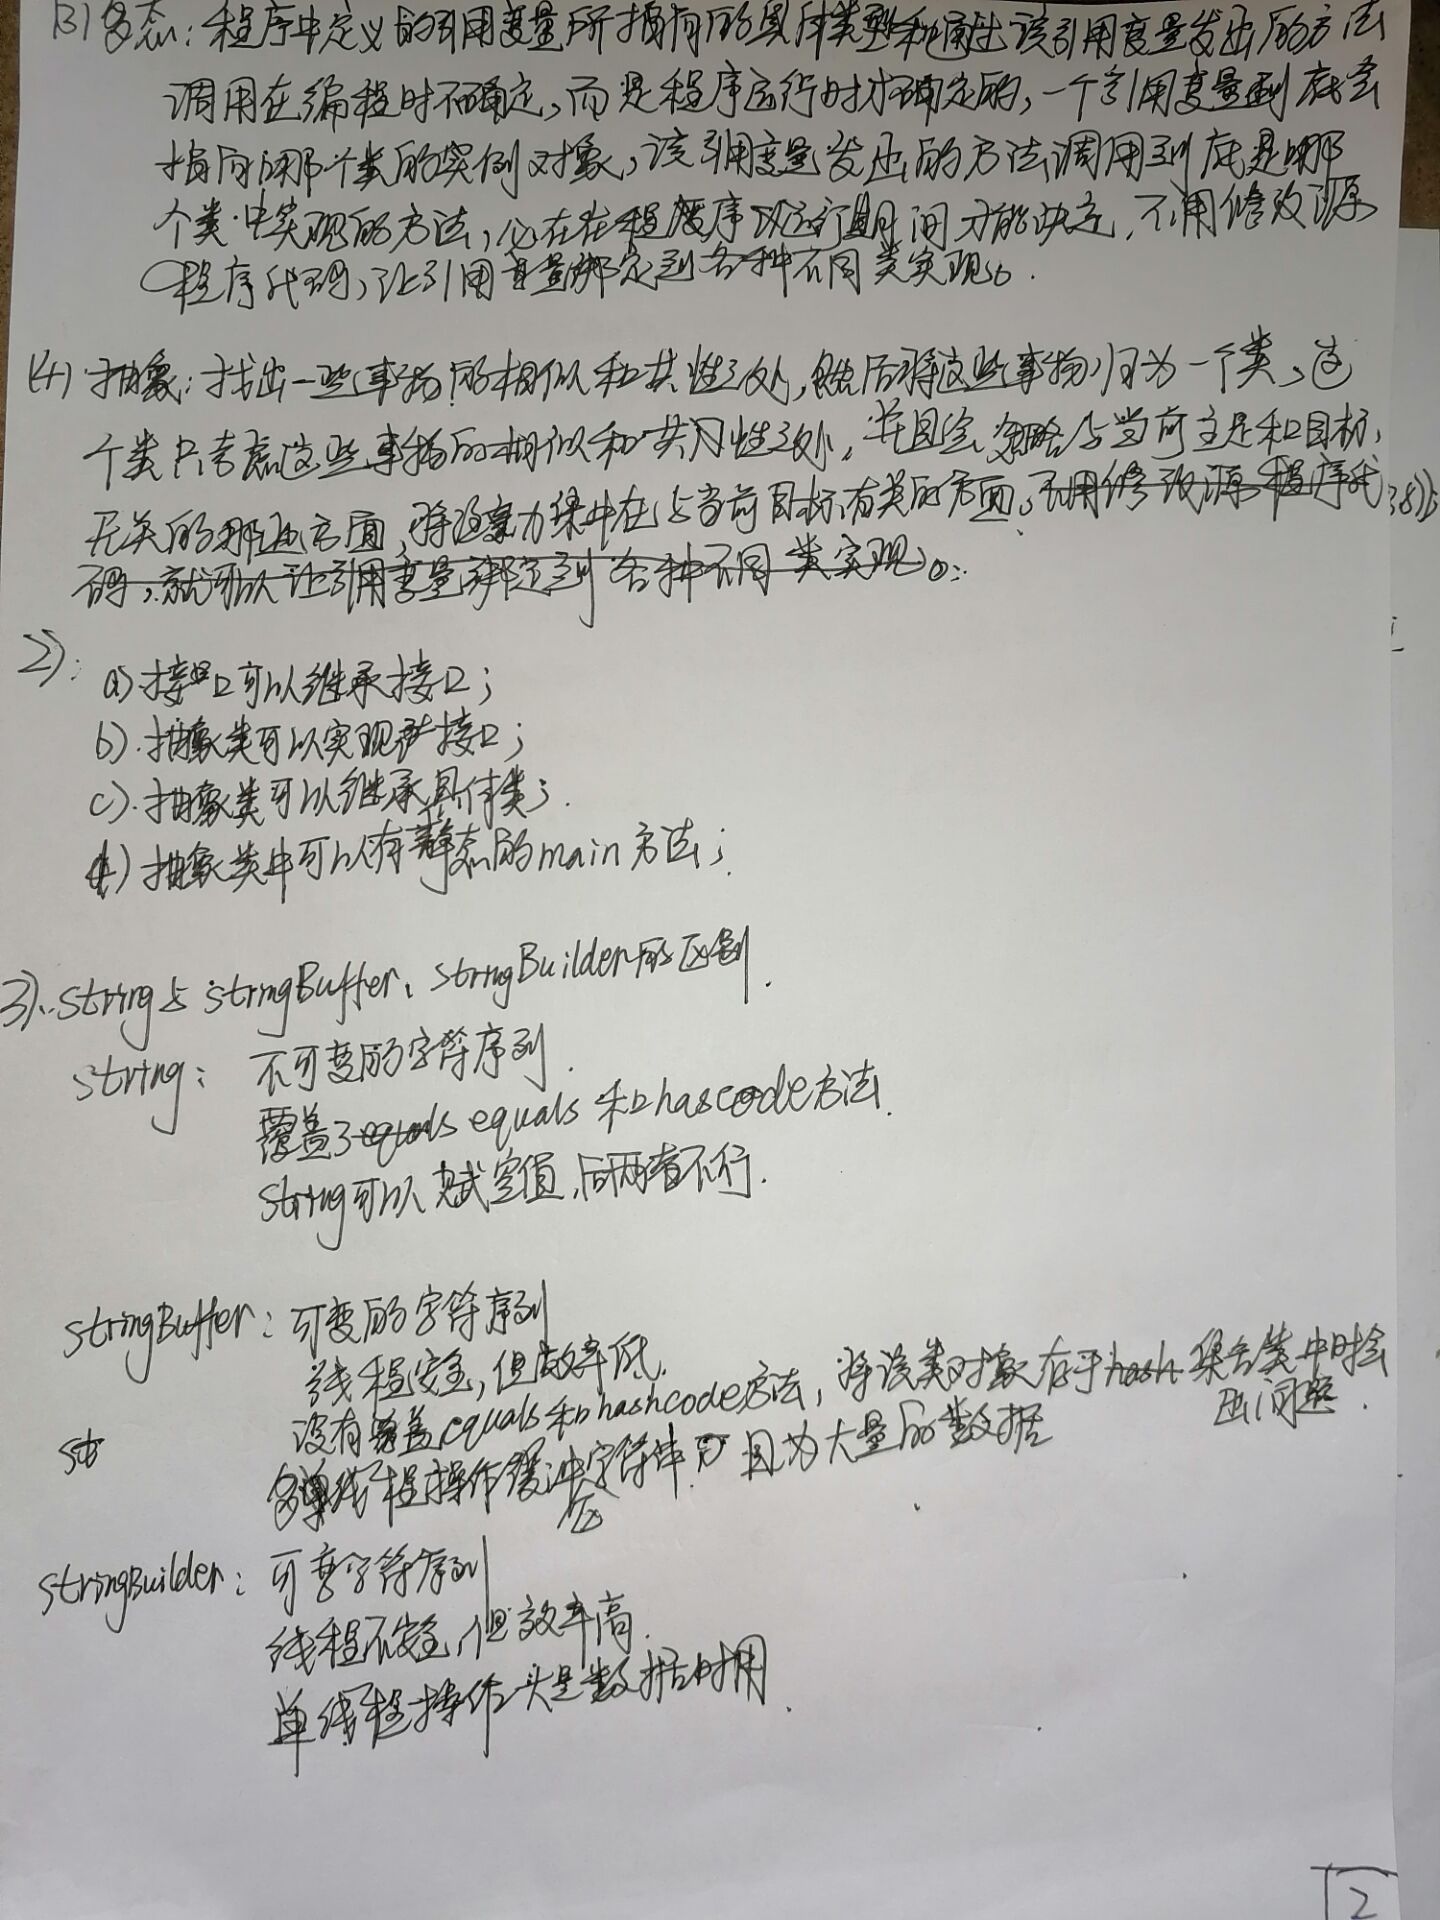 (3) 多态：程序中定义的引用变量所指向的具体类型和通过该引用变量发出的方法
调用在编程时不确定，而是程序运行时才确定的，一个引用变量到底会
指向哪个类的实例对象，该引用变量发出的方法调用到底是哪
个类中实现的方法，必在在程序运行期间才能决定，不用修改源
程序代码，让引用变量绑定到各种不同类实现。
(4) 抽象：找出一些事物的相似和共性之处，然后将这些事物归为一个类，这
个类只考虑这些事物的相似和共同性之处，并且会忽略与当前主题和目标，
无关的那些方面，将注意力集中在与当前目标有关的方面。不用修改源程序代
码，就可以让引用变量绑定到各种不同类实现。
2):
a) 接口可以继承接口；
b). 抽象类可以实现接口；
c). 抽象类可以继承具体类；
d) 抽象类中可以有静态的main方法；
3). string与stringBuffer、stringBuilder的区别.
string： 不可变的字符序列.
覆盖了equals equals和hascode方法.
string可以赋空值，后两者不行.
stringBuffer： 可变的字符序列
线程安全，但效率低.
没有覆盖equals和hashcode方法，将该类对象存于hash集合类中时会
出问题.
st
多线程操作缓冲字符串 大量的数据
区
stringBuilder： 可变字符序列
线程不安全，但效率高.
单线程操作大量数据时用.
2